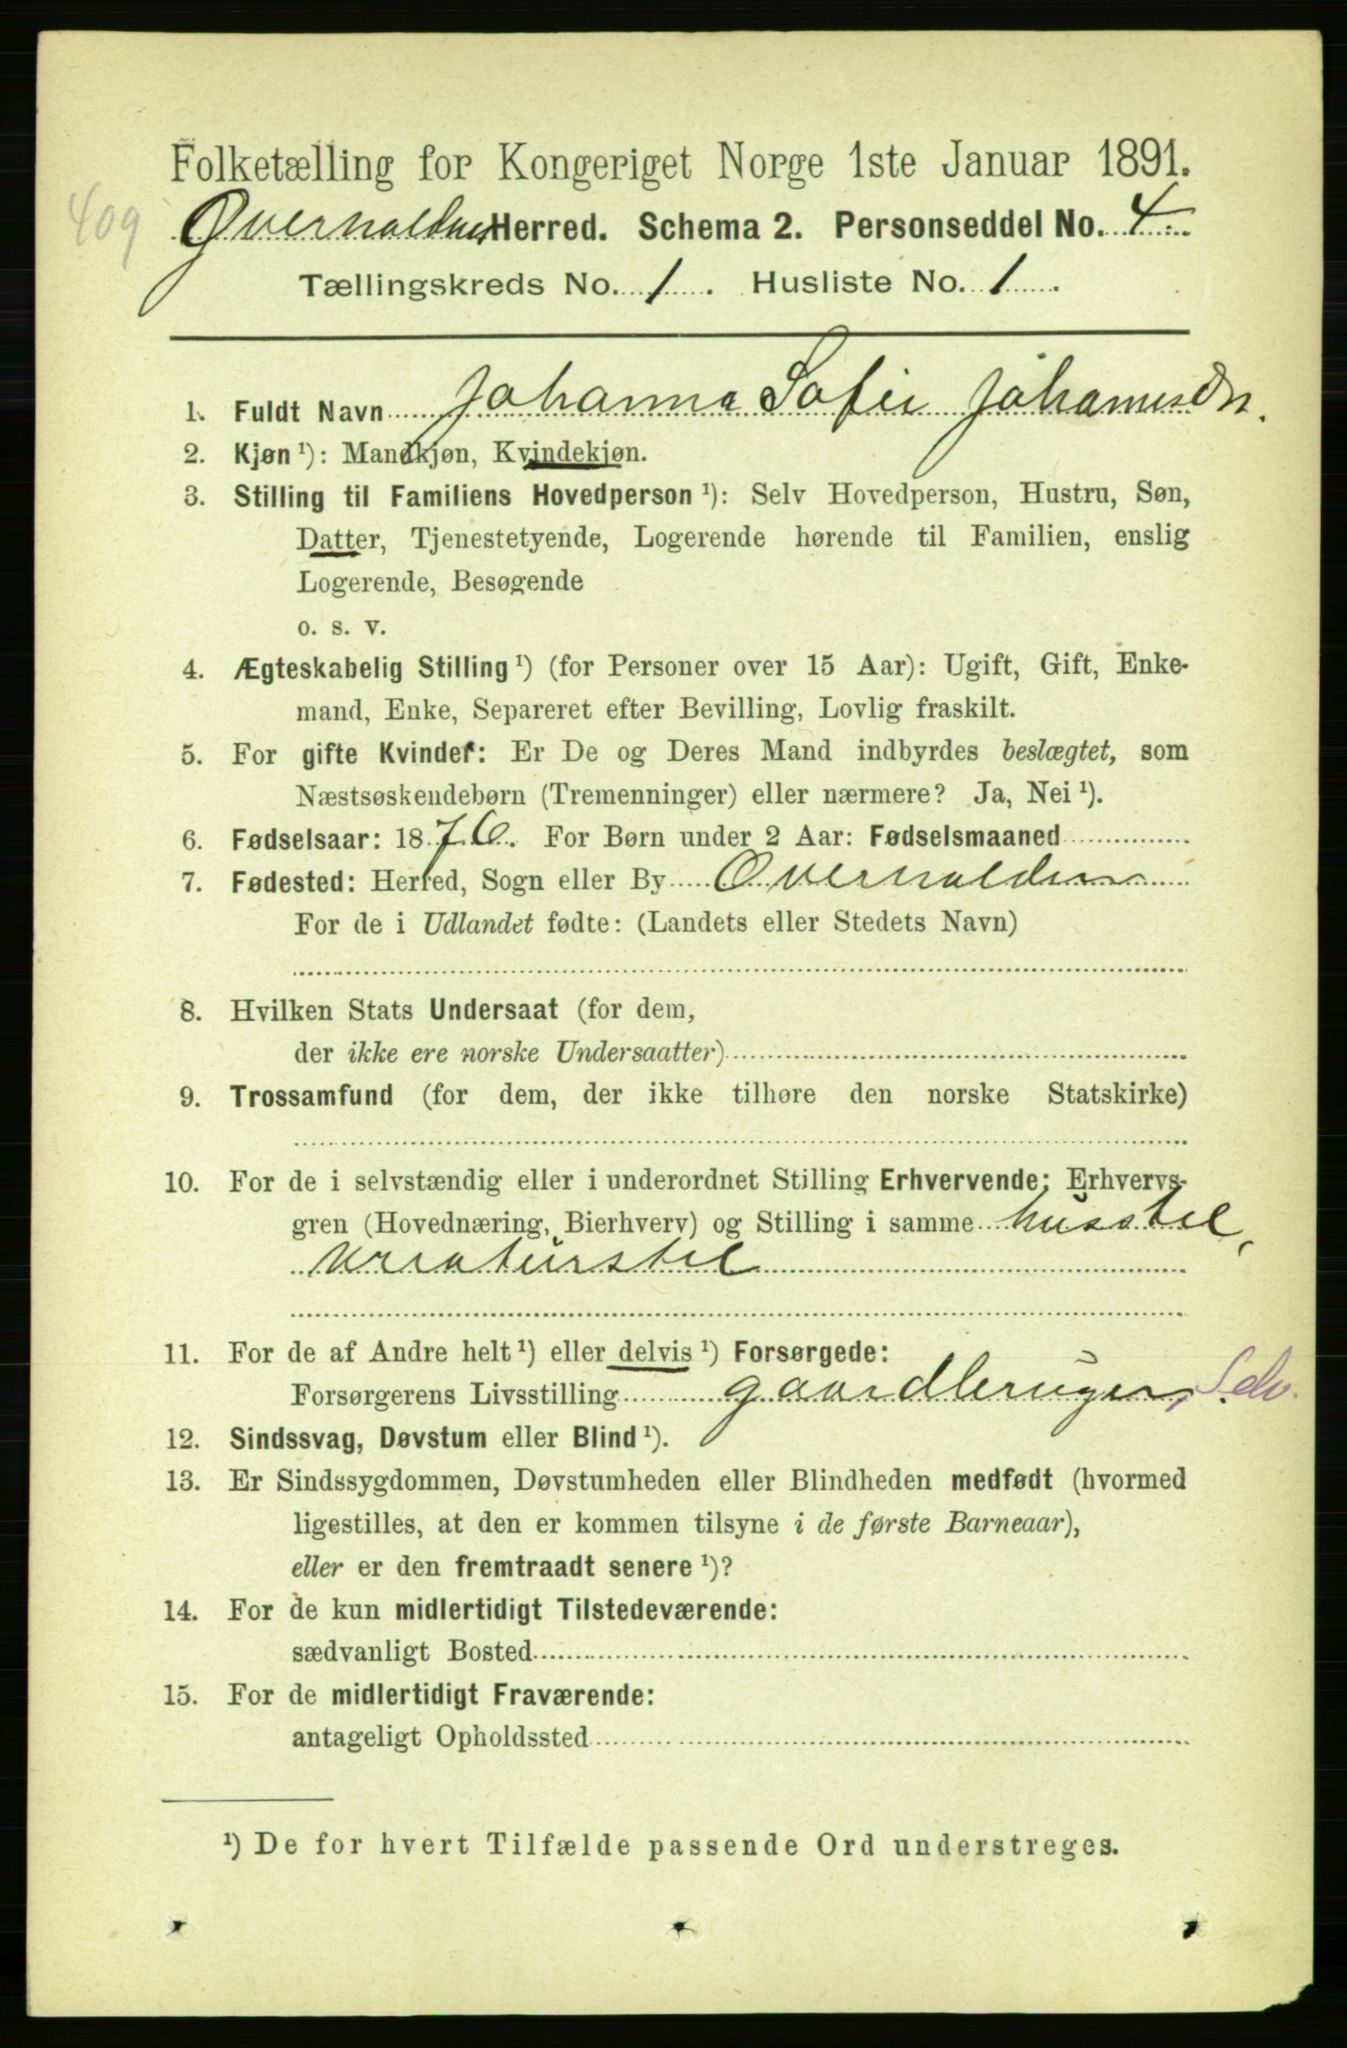 Folketælling for Kongeriget Norge 1ste Januar 1891.
409
Overhalden Herred. Schema 2. Personseddel No. 4
Tællingskreds No. 1. Husliste No. 1.
1. Fuldt Navn Johanna Sofie Johannesdtr.
2. Kjøn ¹): Mandkjøn, Kvindekjøn.
3. Stilling til Familiens Hovedperson ¹): Selv Hovedperson, Hustru, Søn,
Datter, Tjenestetyende, Logerende hørende til Familien, enslig
Logerende, Besøgende
o. s. v.
4. Ægteskabelig Stilling ¹) (for Personer over 15 Aar): Ugift, Gift, Enke-
mand, Enke, Separeret efter Bevilling, Lovlig fraskilt.
5. For gifte Kvinder: Er De og Deres Mand indbyrdes beslægtet, som
Næstsøskendebørn (Tremenninger) eller nærmere? Ja, Nei ¹).
6. Fødselsaar: 1876. For Børn under 2 Aar: Fødselsmaaned
7. Fødested: Herred, Sogn eller By Overhalden
For de i Udlandet fødte: (Landets eller Stedets Navn)
8. Hvilken Stats Undersaat (for dem,
der ikke ere norske Undersaatter)
9. Trossamfund (for dem, der ikke tilhøre den norske Statskirke)
10. For de i selvstændig eller i underordnet Stilling Erhvervende: Erhvervs-
gren (Hovednæring, Bierhverv) og Stilling i samme husstel,
kreaturstel
11. For de af Andre helt ¹) eller delvis ¹) Forsørgede:
Forsørgerens Livsstilling gaardbruger, Selv.
12. Sindssvag, Døvstum eller Blind ¹).
13. Er Sindssygdommen, Døvstumheden eller Blindheden medfødt (hvormed
ligestilles, at den er kommen tilsyne i de første Barneaar),
eller er den fremtraadt senere ¹)?
14. For de kun midlertidigt Tilstedeværende:
sædvanligt Bosted
15. For de midlertidigt Fraværende:
antageligt Opholdssted
¹) De for hvert Tilfælde passende Ord understreges.